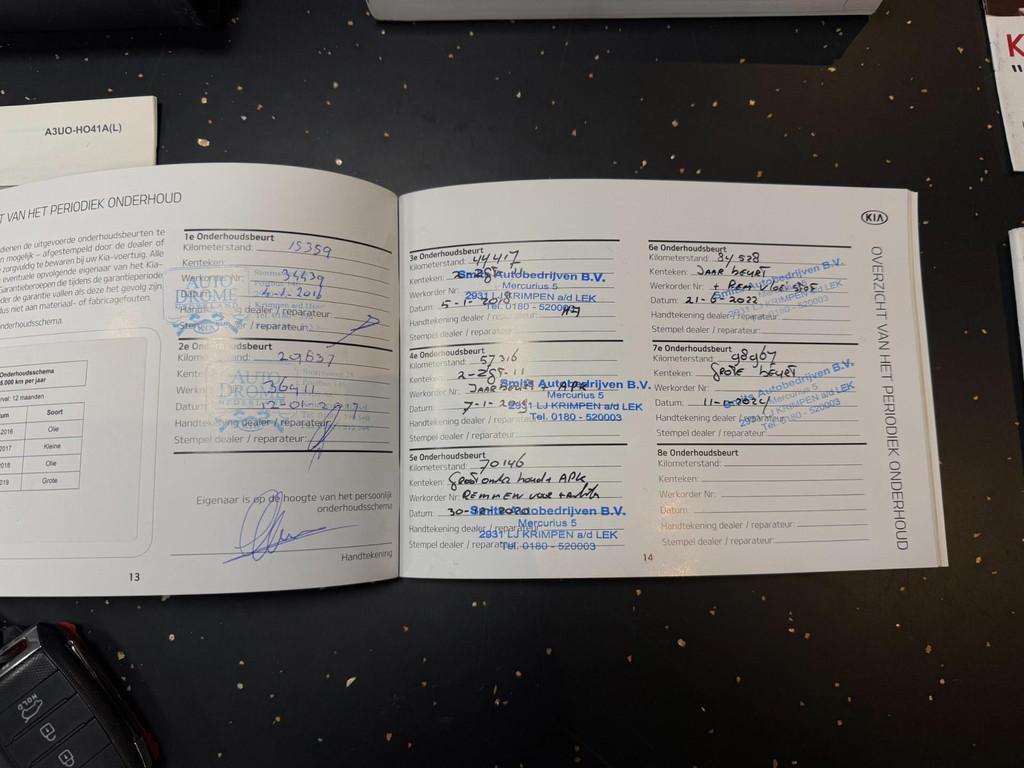 A3UO-HO41A(L)
K
T VAN HET PERIODIEK ONDERHOUD
dienen de uitgevoerde onderhoudsbeurten te
n mogelijk – afgestempeld door de dealer of
zorgvuldig te bewaren bij uw Kia-voertuig. Alle
eventuele opvolgende eigenaar van het Kia-
Garantieberoepen die tijdens de garantieperiode
der de garantie vallen als deze het gevolg zijn
dus niet aan materiaal- of fabricagefouten.
nderhoudsschema.
Onderhoudsschema
5.000 km per jaar
rval: 12 maanden
um Soort
-2016 Olie
2017 Kleine
2018 Olie
019 Grote
13
1e Onderhoudsbeurt
Kilometerstand: 15359
Kenteken:
Werkorder Nr: 34439
AUTO
DROME
2e Onderhoudsbeurt
Kilometerstand: 29637
Werk 36911
Datum 12-01-2017
Handtekening dealer / reparateur:
Stempel dealer / reparateur:
AUTO
DROME
Eigenaar is op de hoogte van het persoonlijk
onderhoudsschema
Handtekening
3e Onderhoudsbeurt
Kilometerstand: 44417
Kenteken:
Werkorder Nr:
Datum: 5-1-2018
Handtekening dealer / reparateur:
Stempel dealer / reparateur:
Smits Autobedrijven B.V.
2931 LJ KRIMPEN a/d LEK
Tel. 0180 - 520003
4e Onderhoudsbeurt
Kilometerstand: 57316
Kenteken:
Werkorder Nr: JAAR beurt + APK
Datum: 7-1-
Handtekening dealer / reparateur:
Stempel dealer / reparateur:
Smits Autobedrijven B.V.
Mercurius 5
2931 LJ KRIMPEN a/d LEK
Tel. 0180 - 520003
5e Onderhoudsbeurt
Kilometerstand: 70146
Kenteken: Groot onderhoud + APK
Werkorder Nr: REMMEN voor + achter
Datum: 30-12-2020
Handtekening dealer / reparateur:
Stempel dealer / reparateur:
Smits Autobedrijven B.V.
Mercurius 5
2931 LJ KRIMPEN a/d LEK
Tel. 0180 - 520003
14
KIA
6e Onderhoudsbeurt
Kilometerstand: 84528
Kenteken: JAAR beurt
Werkorder Nr: + REM VLOEISTOF
Datum: 21-6-2022
Handtekening dealer / reparateur:
Stempel dealer / reparateur:
Autobedrijven B.V.
Mercurius 5
2931 LJ KRIMPEN a/d LEK
Tel. 0180 - 520003
7e Onderhoudsbeurt
Kilometerstand: 98967
Kenteken: GROTE beurt
Werkorder Nr:
Datum:
Handtekening dealer / reparateur:
Stempel dealer / reparateur:
Smits Autobedrijven B.V.
Mercurius 5
2931 LJ KRIMPEN a/d LEK
Tel. 0180 - 520003
8e Onderhoudsbeurt
Kilometerstand:
Kenteken:
Werkorder Nr:
Datum:
Handtekening dealer / reparateur:
Stempel dealer / reparateur:
OVERZICHT VAN HET PERIODIEK ONDERHOUD
HOLD